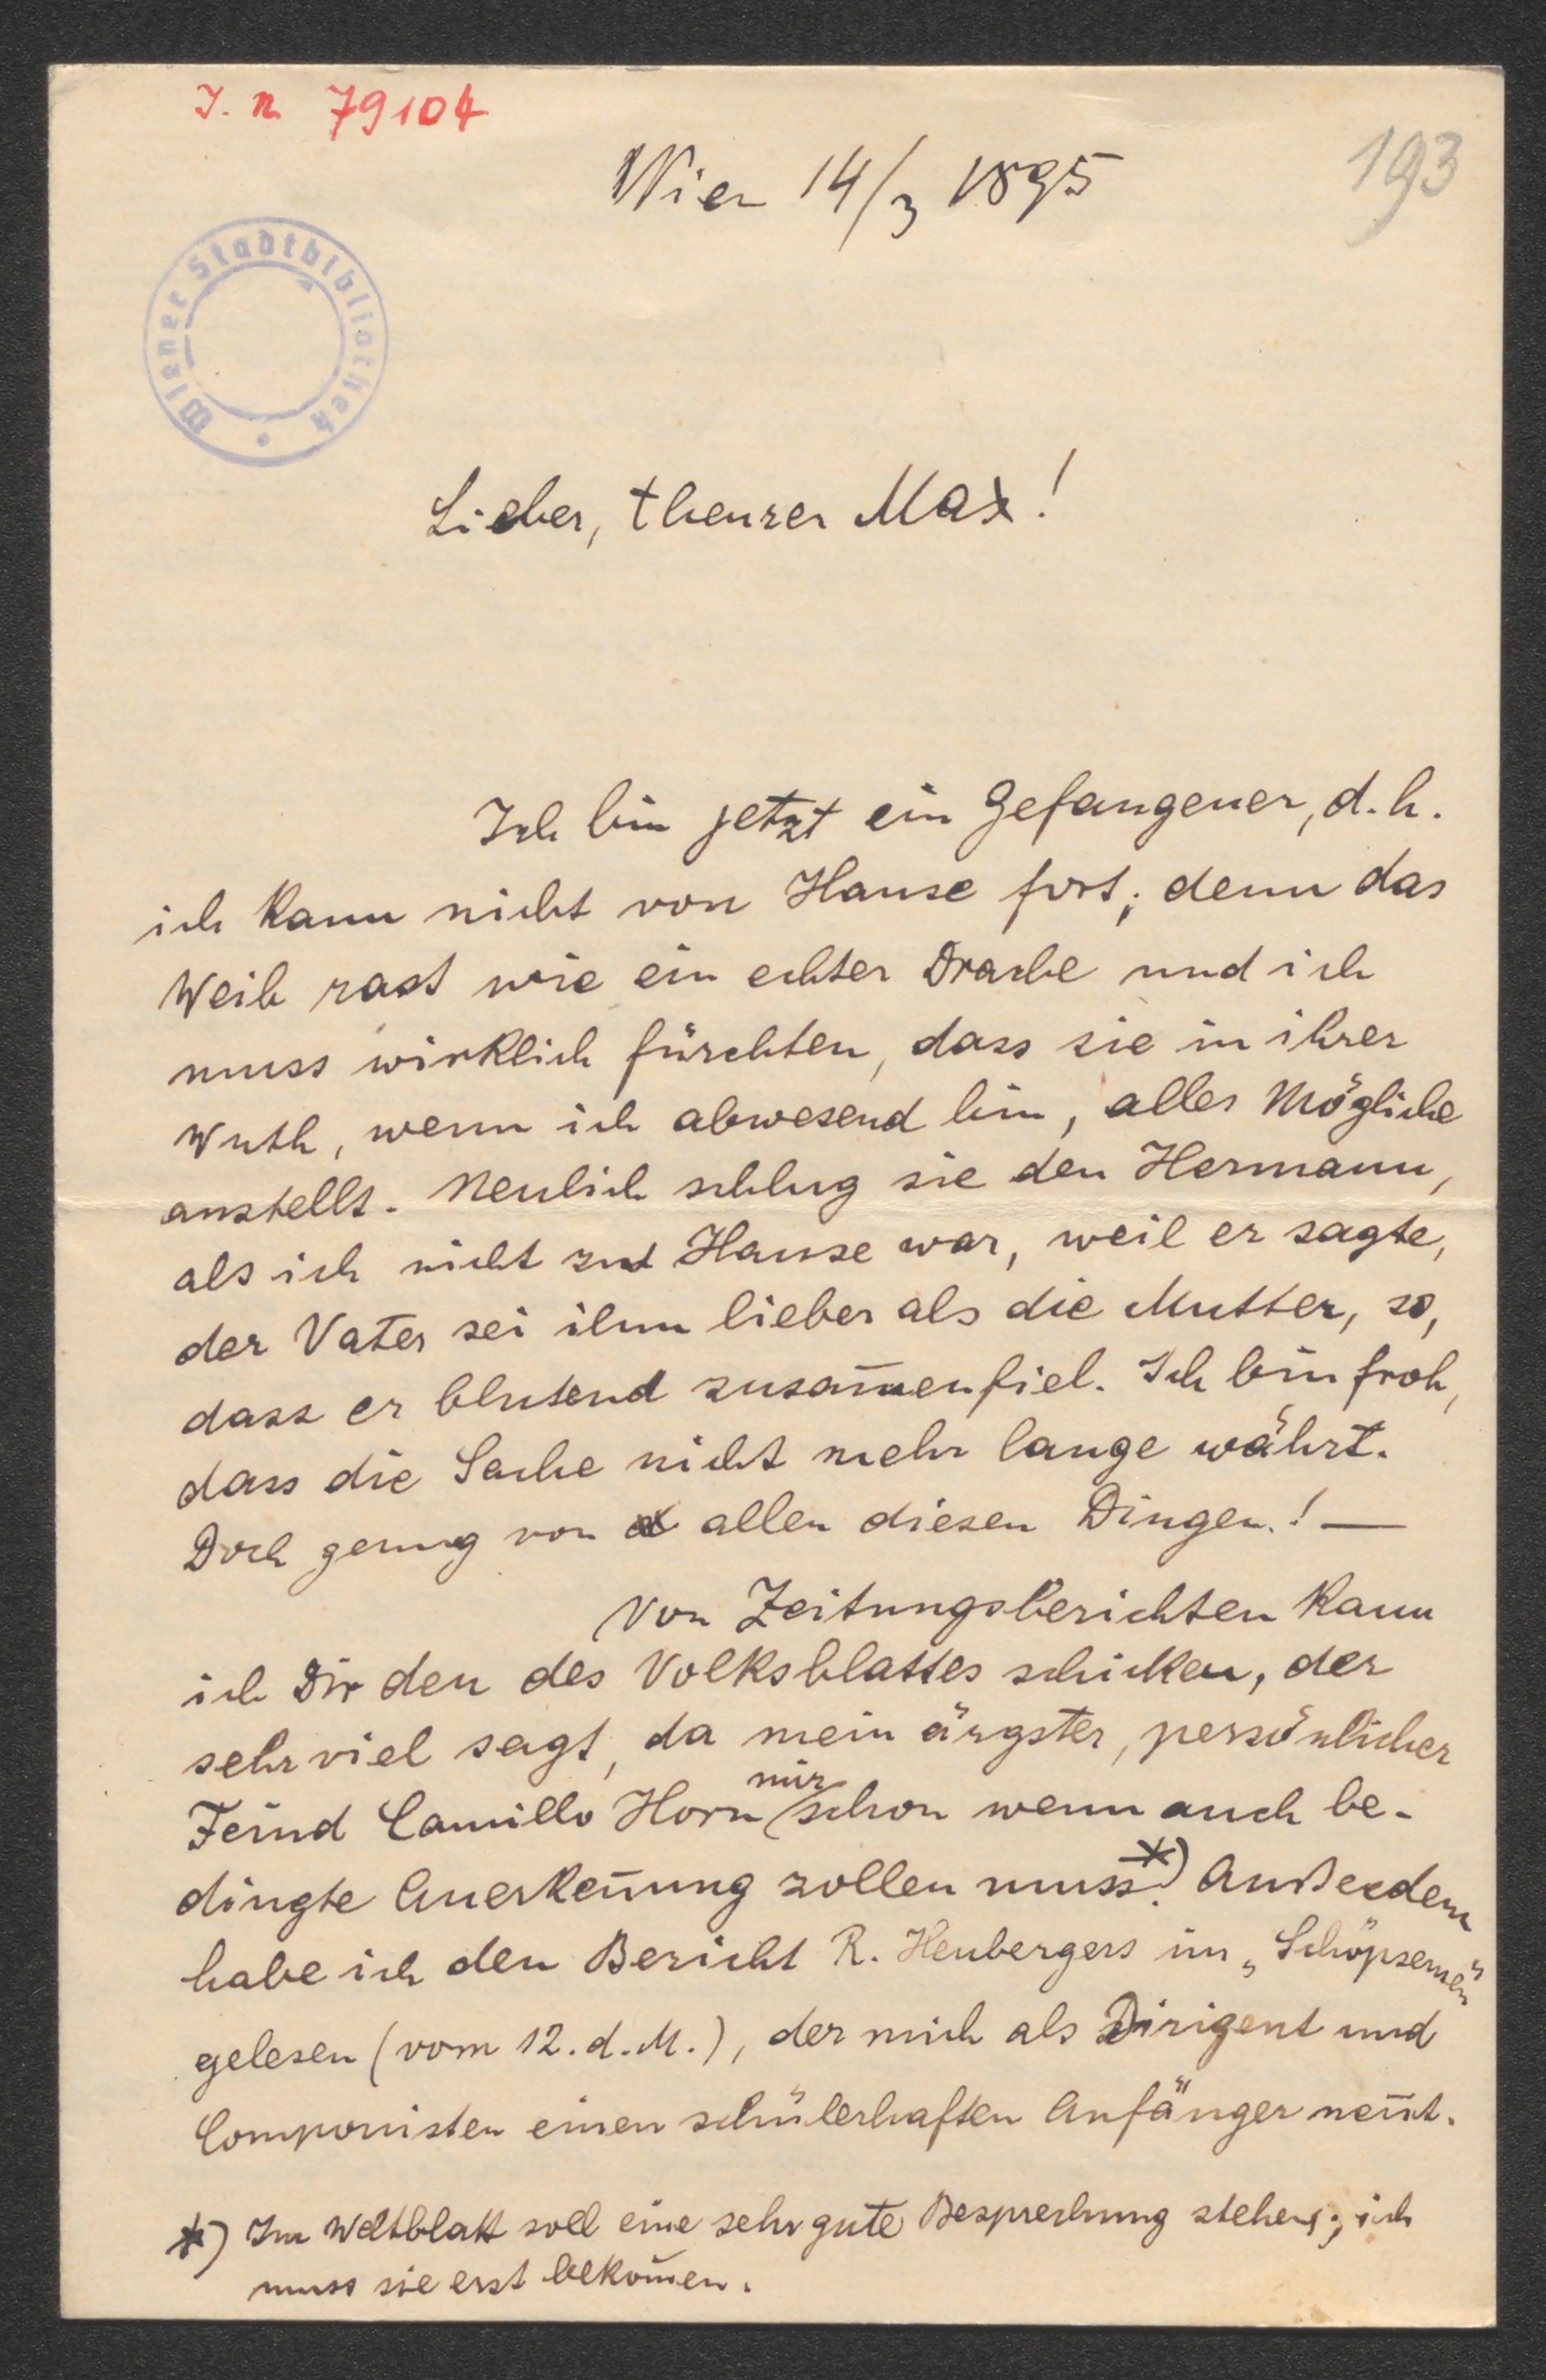 I. N. 79104
193
Wien 14/3 1895
Wiener Stadtbibliothek
Lieber, theurer Max!
Ich bin jetzt ein Gefangener, d.h.
ich kann nicht von Hause fort; denn das
Weib rast wie ein echter Drache und ich
muss wirklich fürchten, dass sie in ihrer
Wuth, wenn ich abwesend bin, alles Mögliche
anstellt. Neulich schlug sie den Hermann,
als ich nicht zu Hause war, weil er sagte,
der Vater sei ihm lieber als die Mutter, so,
dass er blutend zusam̄enfiel. Ich bin froh,
dass die Sache nicht mehr lange währt.
Doch genug von allen diesen Dingen.! —
Von Zeitungsberichten kann
ich Dir den des Volksblattes schicken, der
sehr viel sagt, da mein ärgster, persönlicher
Feind Camillo Horn mir schon wenn auch be-
dingte Anerken̄ung zollen muss.*) Außerdem
habe ich den Bericht R. Heubergers im „Schöpsernen“
gelesen (vom 12. d. M.), der mich als Dirigent und
Componisten einen schülerhaften Anfänger nen̄t.
*) Im Weltblatt soll eine sehr gute Besprechung stehen; ich
muss sie erst bekom̄en.